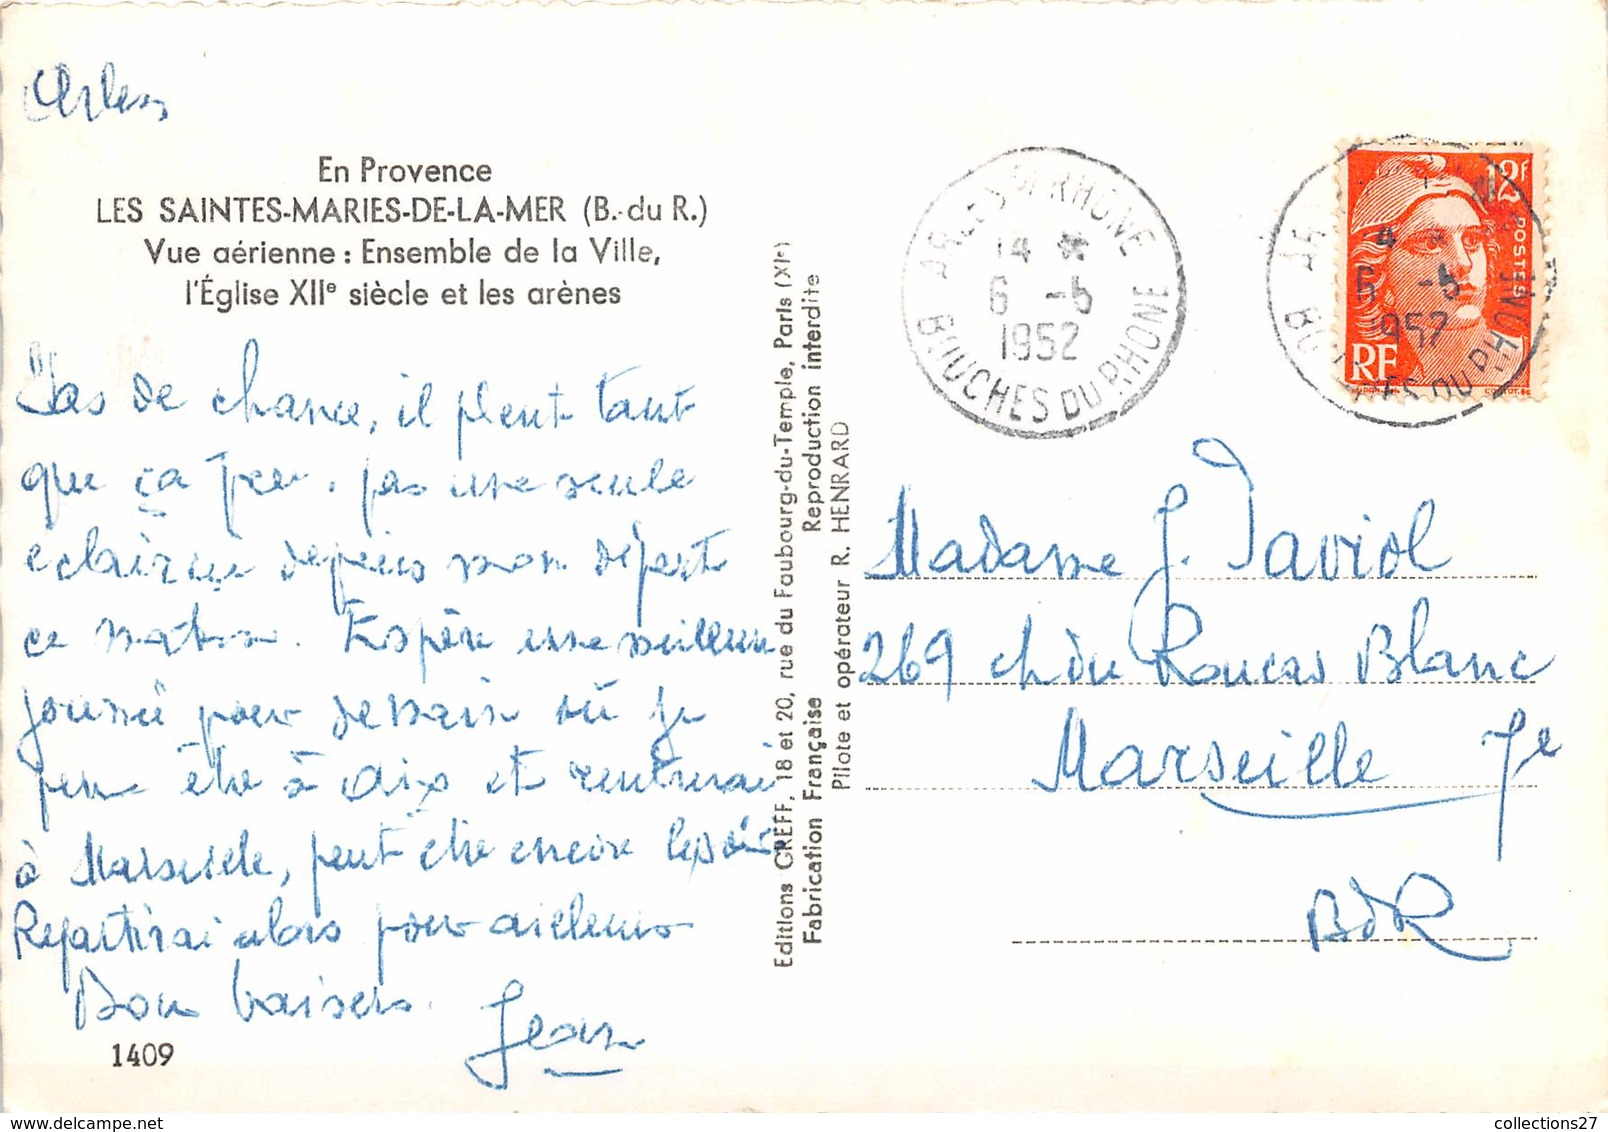 Arles
En Provence
LES SAINTES-MARIES-DE-LA-MER (B.-du R.)
Vue aérienne : Ensemble de la Ville,
l'Église XIIe siècle et les arènes
Pas de chance, il pleut tant
que ça peu. pas une seule
eclaircie depuis mon départ
ce matin. Espère une meilleure
journée pour demain où je
pense être à Aix et rentrerai
à Marseille, peut être encore le soir
Repartirai alors pour ailleurs
Bons baisers.
Jean
1409
Editions GREFF, 18 et 20, rue du Faubourg-du-Temple, Paris (XIe)
Fabrication Française
Reproduction interdite
Pilote et opérateur R. HENRARD
ARLES S/ RHONE
14 *
6 -5
1952
BOUCHES DU RHONE
12F
POSTES
RF
6 -5
1952
Madame J. Taviol
269 ch du Roucas Blanc
Marseille 7e
BdR
collections27